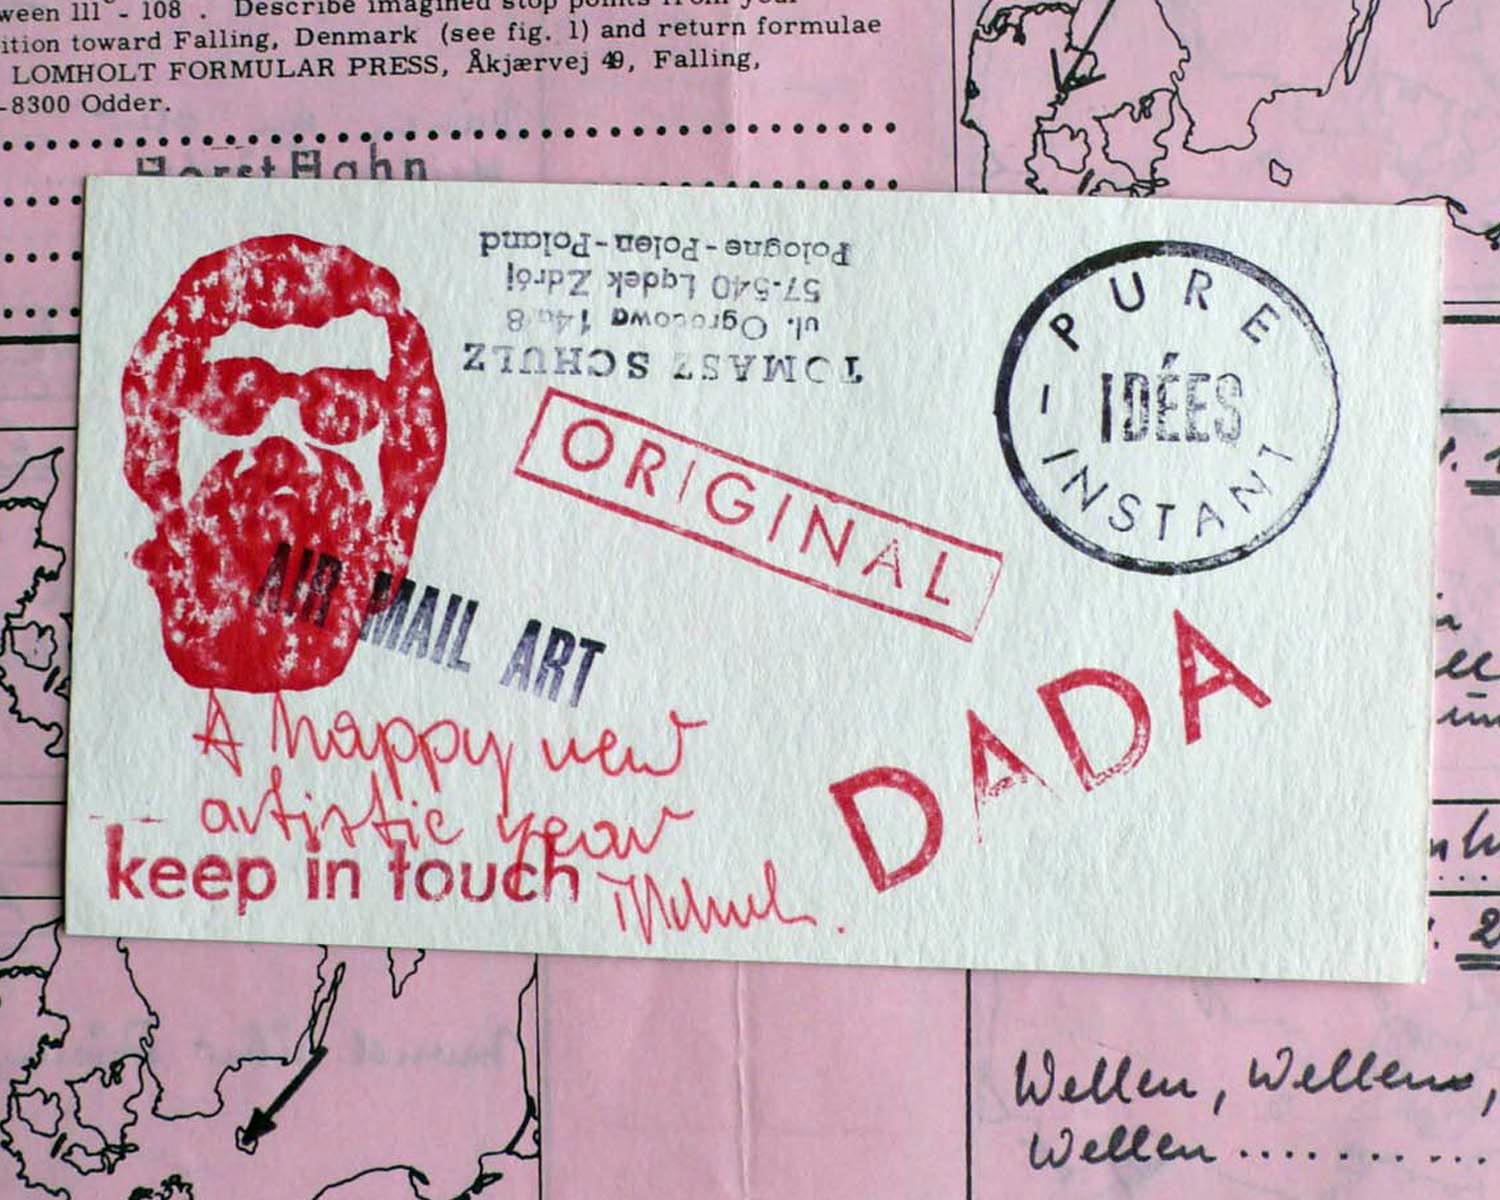 ween 111° - 108 . Describe imagined stop points from your
ition toward Falling, Denmark (see fig. 1) and return formulae
LOMHOLT FORMULAR PRESS, Åkjærvej 49, Falling,
-8300 Odder.
Horst Hahn
TOMASZ SCHULZ
ul. Ogrodowa 14a/8
57-540 Lądek Zdrój
Pologne-Polen-Poland
PURE
IDÉES
- INSTANT
ORIGINAL
AIR MAIL ART
DADA
A happy new
artistic year
keep in touch
Wellen, Wellen,
Wellen...........